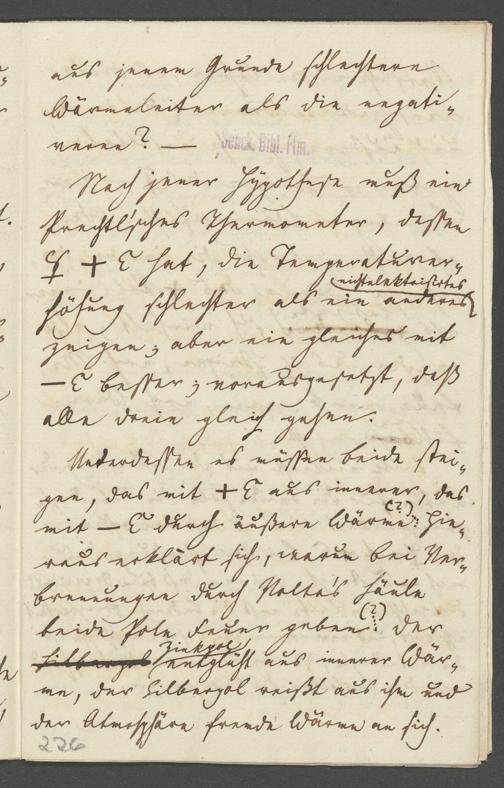 aus jenem Grunde schlechtere
Wärmeleiter als die negati-
veren? —
Senck. Bibl. Ffm.
Nach jener Hypothese muß ein
Prechtl'sches Thermometer, dessen
☿ + E hat, die Temperaturer-
höhung schlechter als ein nichtelektrisirtes anderes
zeigen; aber ein gleiches mit
— E besser; vorausgesetzt, daß
alle drein gleich gehen.
Unterdessen es müssen beide stei-
gen, das mit + E aus innerer, das
mit — E durch äußere Wärme (?): Hie-
raus erklärt sich, warum bei Ver-
brennungen durch Volta's Säule
beide Pole Feuer geben (?): Der
Silberpol Zinkpol entglüht aus innerer Wär-
me, der Silberpol reißt aus ihm und
der Atmosphäre fremde Wärme an sich.
226